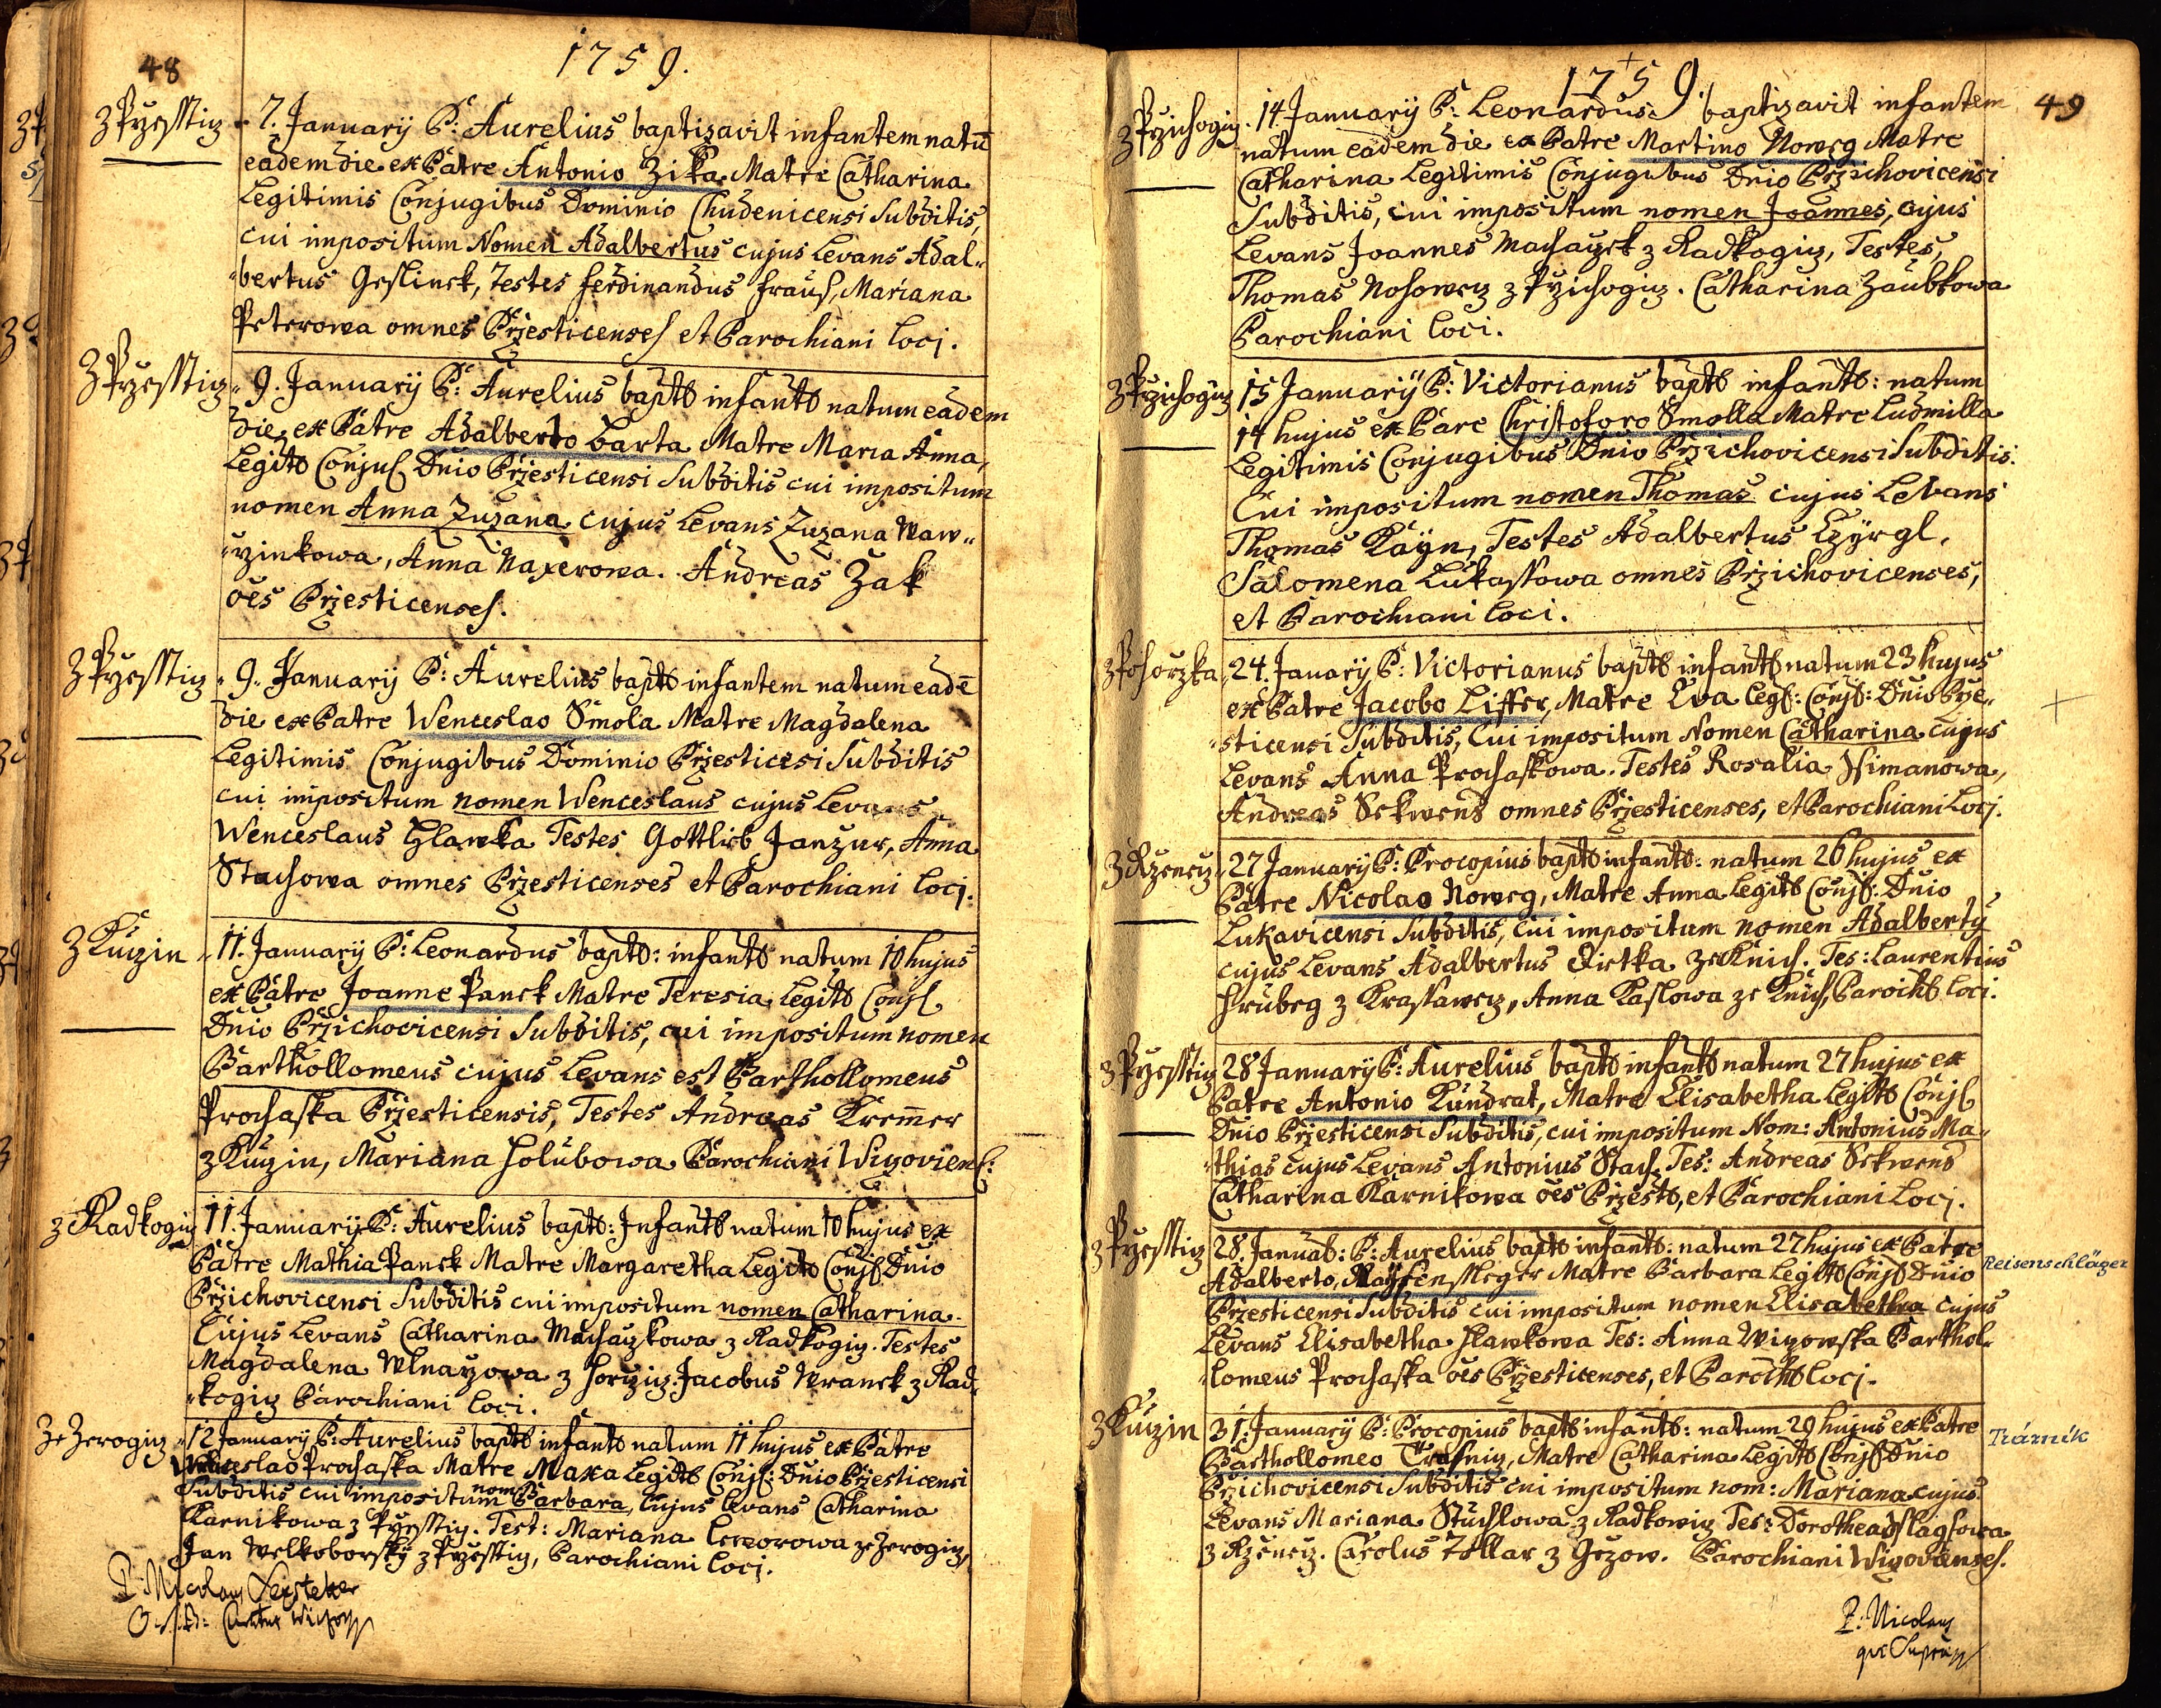 48
1759.
z Przesstiz
7. January P: Aurelius baptizavit infantem natū
eadem die ex Patre Antonio Zika Matre Catharina
Legitimis Conjugibus Dominio Chudenicensi Subditis,
cui impositum Nomen Adalbertus cujus Levans Adal„
„bertus Testes Ferdinandus Fraus, Mariana
Peterowa omnes Przesticenses et Parochiani Loci.
z Przesstiz
9. January P: Aurelius bapt infant natum eadem
die ex Patre Adalberto Barta Matre Maria Anna,
Legit Conjug Dnio Przesticensi Subditis cui impositum
nomen Anna Zuzana cujus Levans Zuzana Waw„
„rzinkowa, Anna Naxerowa. Andreas Zak
oēs Przesticenses.
z Przesstiz
9. January P: Aurelius bapt infantem natum eadē
die ex Patre Wenceslao Smola Matre Magdalena
Legitimis Conjugibus Dominio Przesticesi Subditis
cui impositum nomen Wenceslaus cujus Levans
Wenceslaus Hlawka Testes Gottlieb Janzur, Anna
Stachowa omnes Przesticenses et Parochiani Loci.
z Kuczin
11. January P: Leonardus bapt: infant natum 10 hujus
ex Patre Joanne Panek Matre Teresia Legit Conj
Dnio Przichovicensi Subditis, cui impositum nomen
Barthollomeus cujus Levans est Barthollomeus
Prochaska Przesticensis, Testes Andreas Krem̄er
z Kuczin, Mariana Holubowa Parochiani Wiczoviens:
z Radkogicz
11. January P: Aurelius bapt: Infant natum 10 hujus ex
Patre Mathia Panek Matre Margaretha Legit Conj Dnio
Przichovicensi Subditis cui impositum nomen Catharina
Cujus Levans Catharina Machaczkowa z Radkogicz. Testes
Magdalena Wlnarzowa z Horzicz. Jacobus Wranek z Rad„
„kogicz Parochiani Loci.
ze Zerogicz
12 January P: Aurelius bapt infant natum 11 hujus ex Patre
Wenceslao Prochaska Matre Maxa Legit Conj: Dnio Przesticensi
Subditis cui impositum nom Barbara, Cujus Levans Catharina
Karnikowa z Przesstiz. Test: Mariana ze Zerogicz,
Jan Welkoborsky z Przesstiz, Parochiani Loci.
P: Nicolaus
O.S.B:
1759.
49
z Przichogicz
14 January P: Leonardus baptizavit infantem
natum eadem die ex Patre Martino Noweg Matre
Catharina Legitimis Conjugibus Dnio Przichovicensi
Subditis, cui impositum nomen Joannes, cujus
Levans Joannes Machaczek z Radkogicz, Testes,
Thomas Nosowecz z Przichogicz. Catharina Zaubkowa
Parochiani Loci.
z Przichogicz
15 January P: Victorianus bapt infant: natum
14 hujus ex Pare Christoforo Smolla Matre Ludmilla
Legitimis Conjugibus Dnio Przichovicensi Subditis.
Cui impositum nomen Thomas cujus Levans
Thomas Kayn, Testes Adalbertus Czyrgl,
Salomena Lukassowa omnes Przichovicenses,
et Parochiani Loci.
z Pohorzka
24. Januarÿ P: Victorianus bapt infant natum 23 hujus
ex Patre Jacobo Liffer, Matre Eva Leg: Conj: Dnio Prze„
„sticensi Subditis, Cui impositum Nomen Catharina cujus
Levans Anna Prochaskowa. Testes Rosalia Ssimanowa,
Andreas Sekwens omnes Przesticenses, et Parochiani Loci.
z Rzenecz
27 January P: Procopius bapt infant: natum 26 hujus ex
Patre Nicolao Noweg, Matre Anna Legit Conj: Dnio
Lukavicensi Subditis, Cui impositum nomen Adalberty
cujus Levans Adalbertus ze Knich. Tes: Laurentius
Hrubeg z Krassawecz, Anna Kaslowa ze Knich, Paroch Loci.
z Przesstiz
28 January P: Aurelius bapt infant natum 27 hujus ex
Patre Antonio Kundrat, Matre Elisabetha Legit Conj
Dnio Przesticensi Subditis, cui impositum Nom: Antonius Ma„
„thias cujus Levans Antonius Stach. Tes: Andreas Sekwens
Catharina Karnikowa oēs Przest, et Parochiani Loci.
z Przesstiz
28. Januab: P: Aurelius bapt infant: natum 27 hujus ex Patre
Adalberto Raysensleger Matre Barbara Legit Conj Dnio
Przesticensi Subditis cui impositum nomen Elisabetha cujus
Levans Elisabetha Hlawkowa Tes: Anna Wiczowska Barthol„
„lomeus Prochaska oēs Przesticenses, et Paroch Loci.
Reisenschläger
z Kuczin
31. January P: Procopius bapt infant: natum 29 hujus ex Patre
Barthollomeo Trasnig, Matre Catharina Legit Conj Dnio
Przichovicensi Subditis cui impositum nom: Mariana cujus
Levans Mariana Stuchlowa z Radkowicz Tes: Dorothea
z Rzenecz. Carolus Tollar z Gezow. Parochiani Wiczovienses.
Trázník
P: Nicolaus
qui Supra